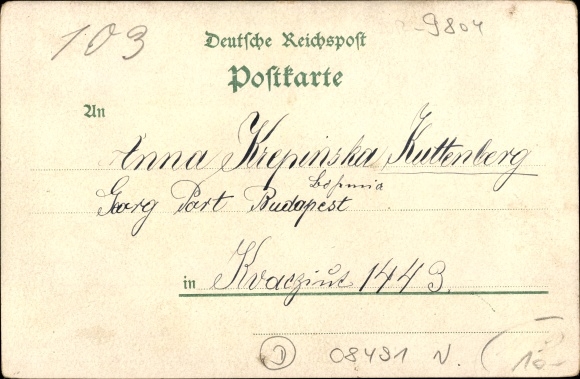 103
9804
Deutsche Reichspost
Postkarte
An
Anna Krepinska Kuttenberg
Georg Part Budapest
in Kvacziut 1443.
D 08491 N.